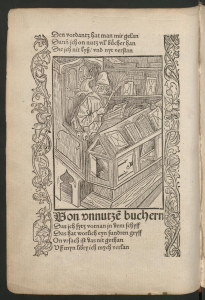 Den vordantz hat man mir gelan
Dann ich on nutz vil bücher han
Die ich nit lyß, und nyt verstan
Von vnnutzē buchern
Das ich sytz vornan jn dem schyff
Das hat worlich eyn sundren gryff
On vrsach ist das nit gethan
Uff myn libry ich mych verlan